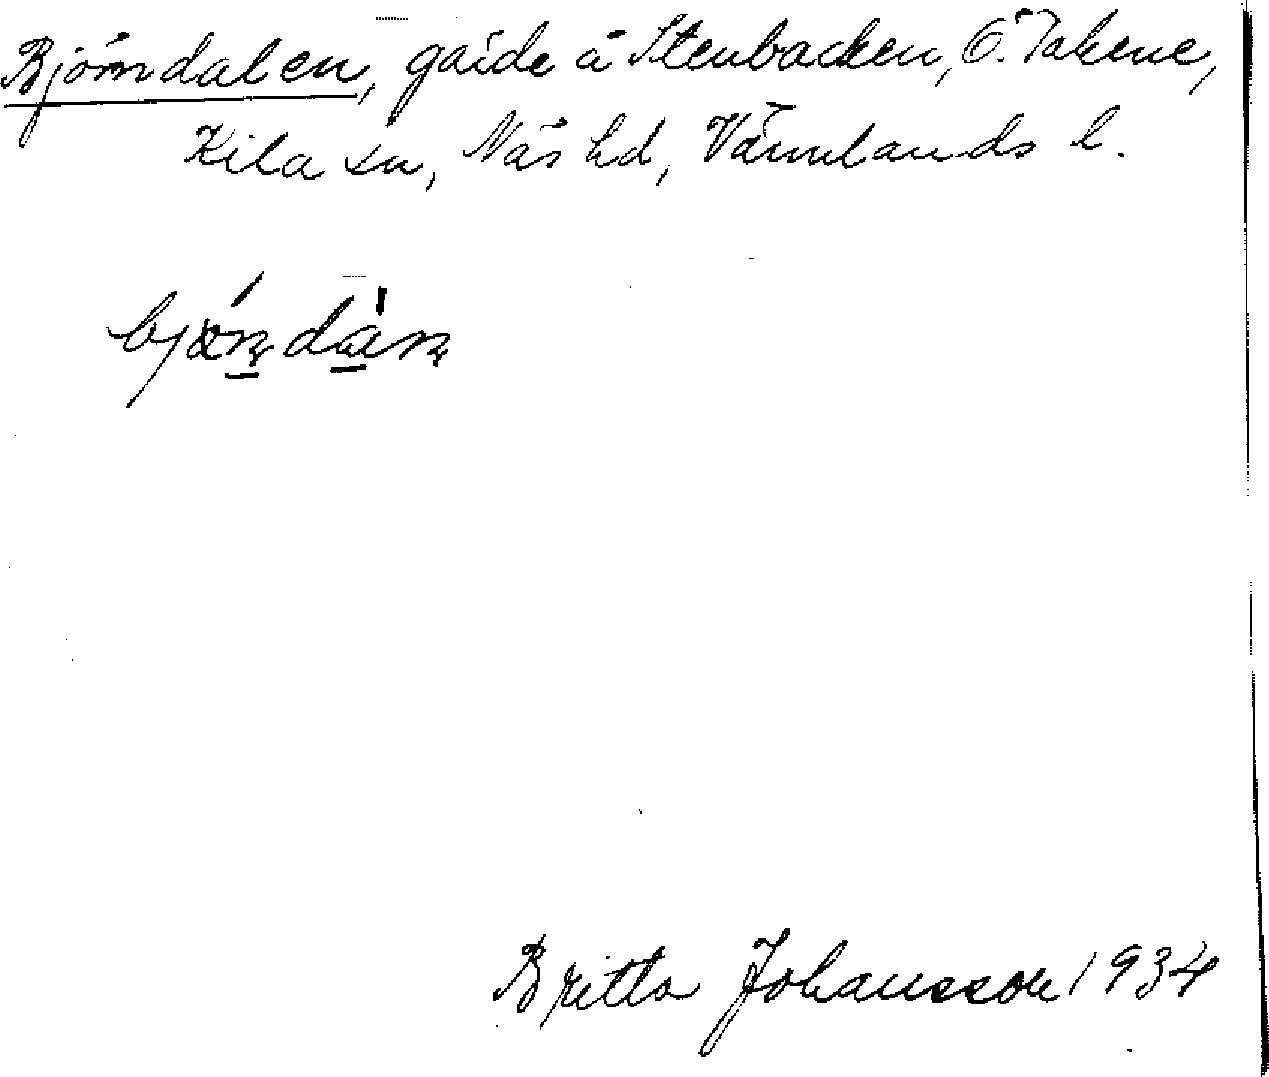 Björndalen, gärde å Stenbacken, Ö. Takene,
Kila sn, Näs hd, Värmlands l.
Britta Johansson 1934